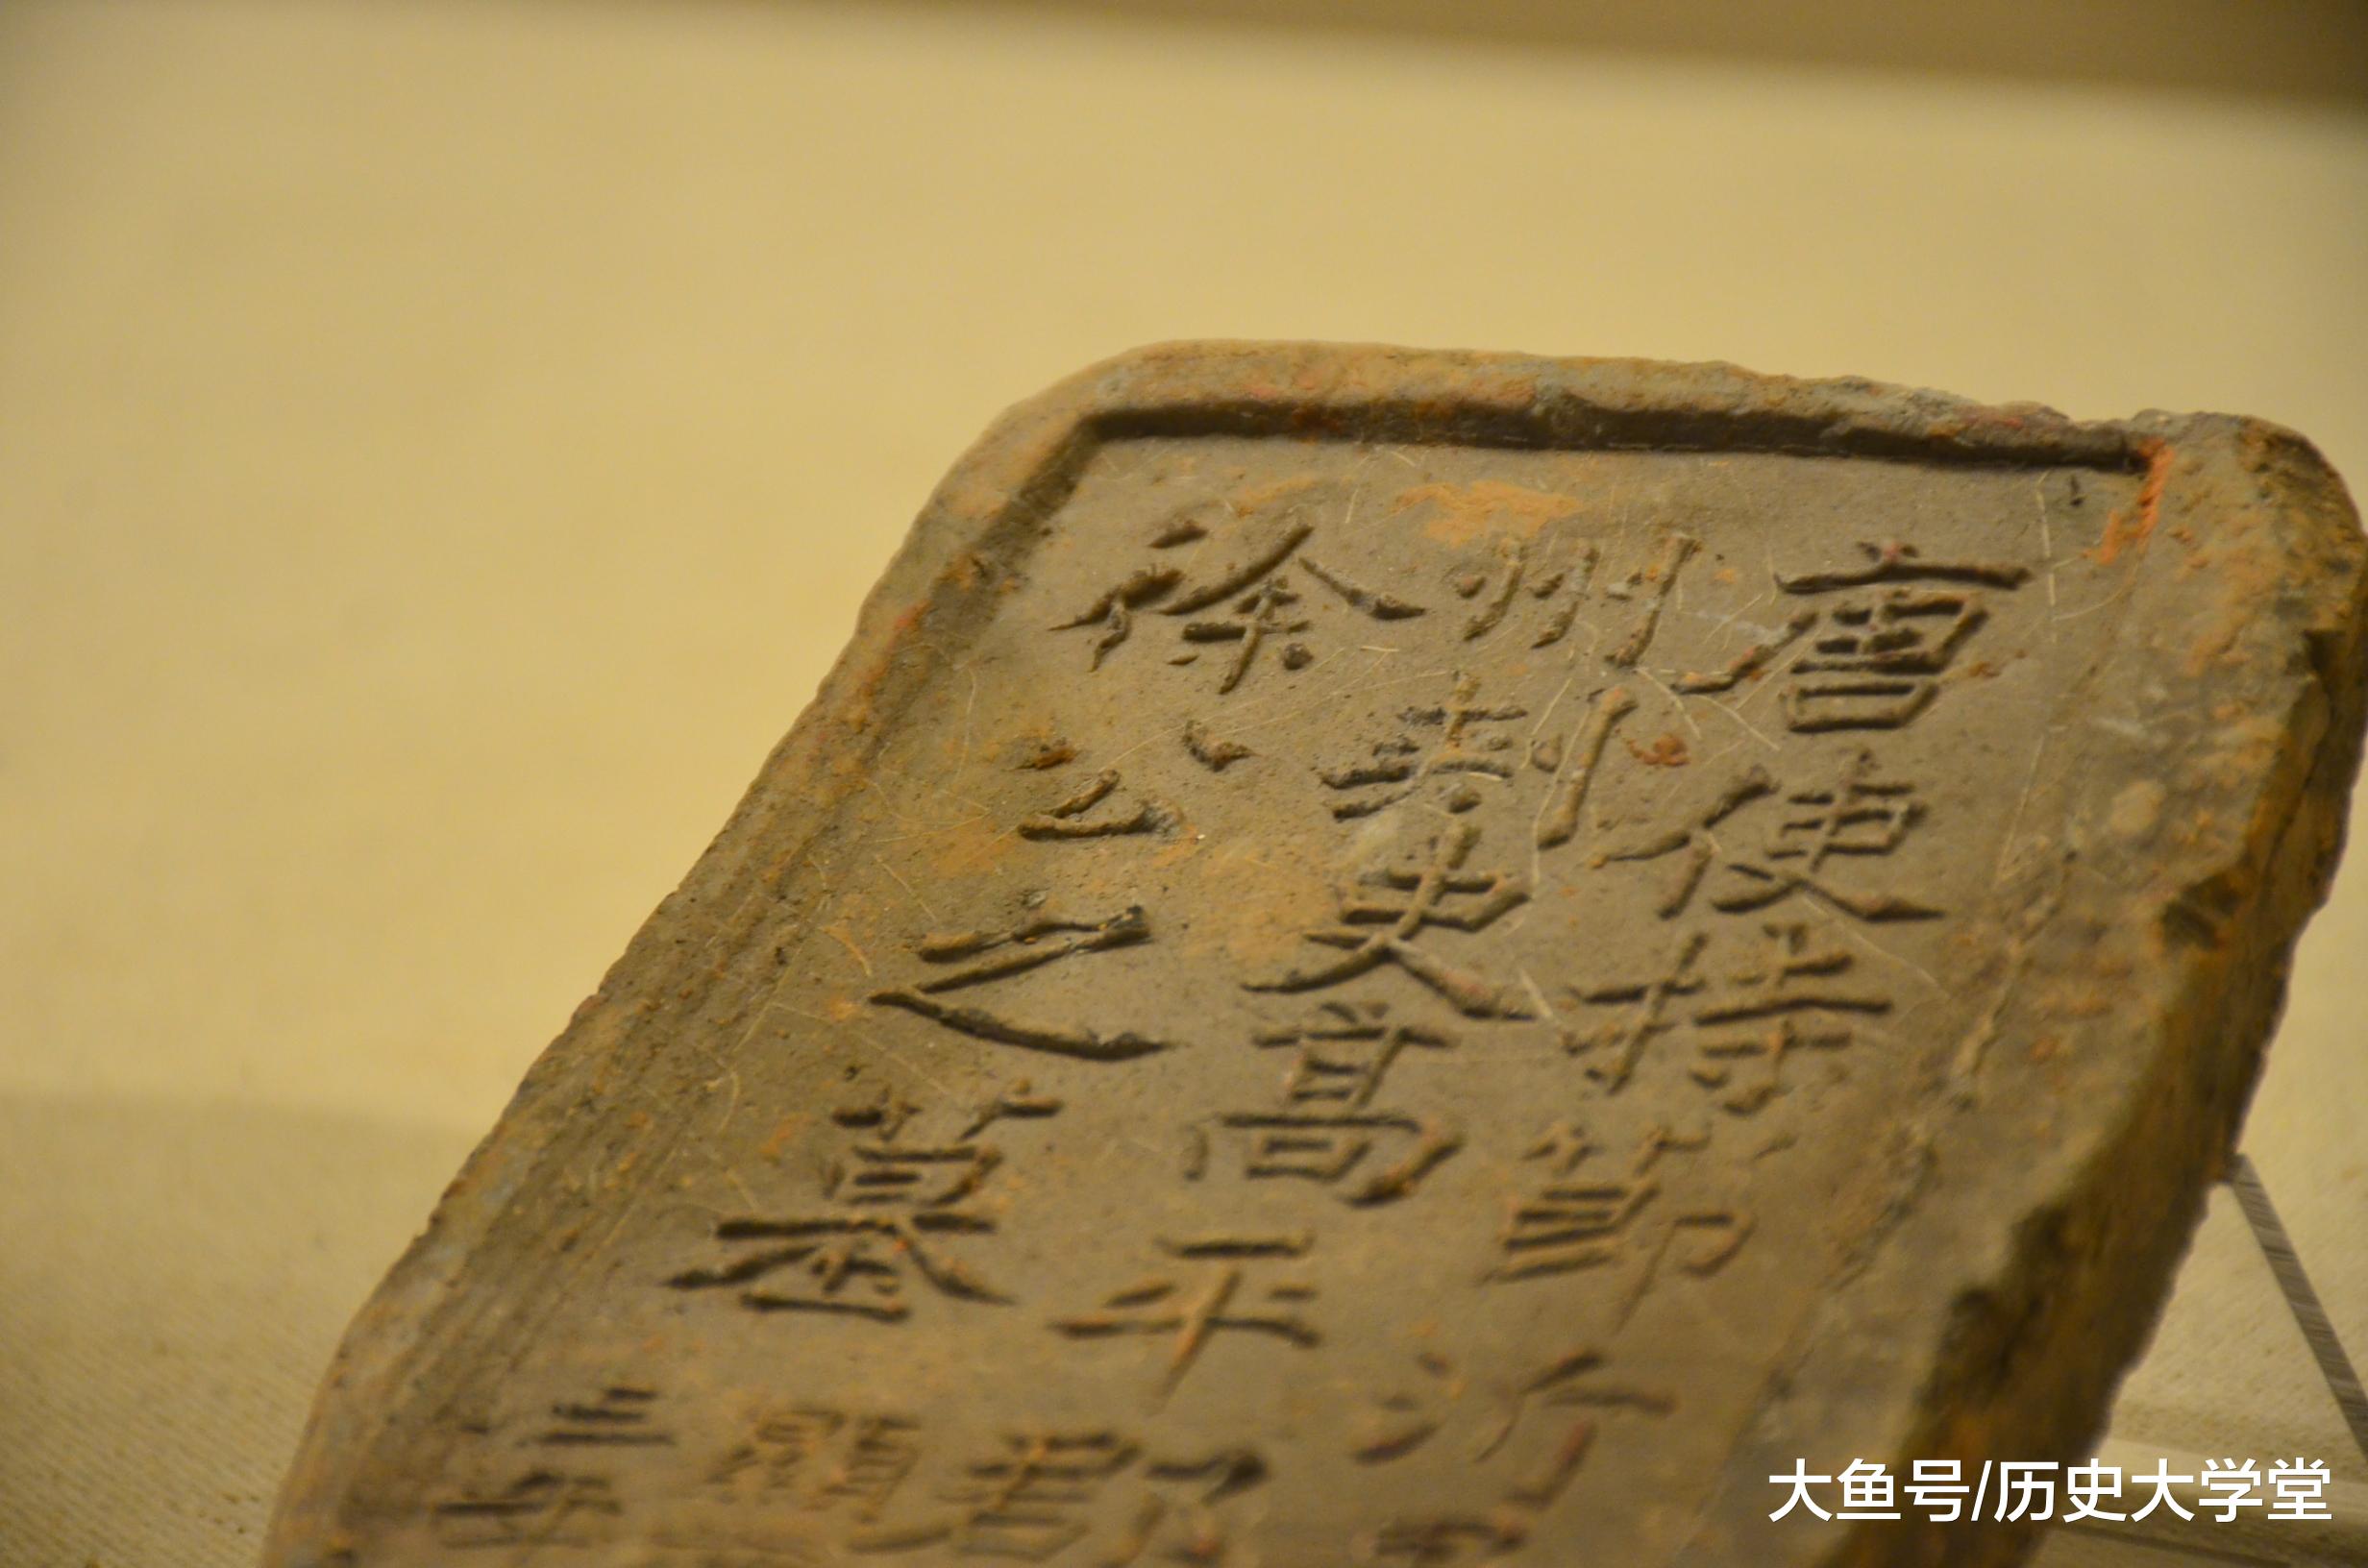 唐使持節沂
州刺史高平郡
徐公之墓
顯
三年
大鱼号/历史大学堂